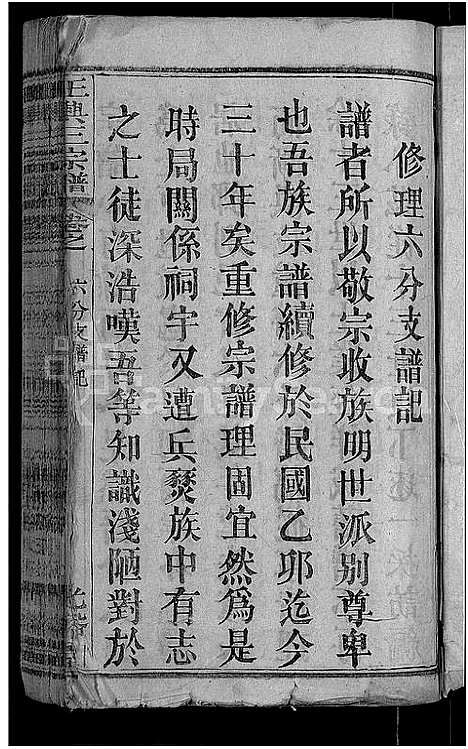 修理六分支譜記
譜者所以敬宗收族明世派别尊卑
也吾族宗譜續修於民國乙卯迄今
三十年矣重修宗譜理固宜然爲是
時局關係祠宇又遭兵燹族中有志
之士徒深浩嘆吾等知識淺陋對於
宗譜
卷之
六分支譜記